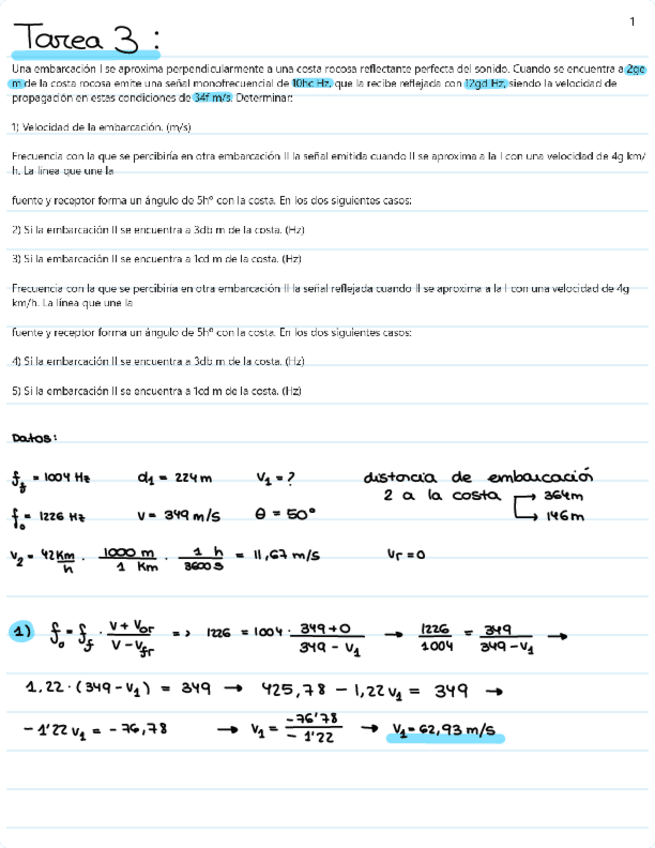 1
Tarea 3 :
Una embarcación I se aproxima perpendicularmente a una costa rocosa reflectante perfecta del sonido. Cuando se encuentra a 2ge
m de la costa rocosa emite una señal monofrecuencial de 10hc Hz, que la recibe reflejada con 12gd Hz, siendo la velocidad de
propagación en estas condiciones de 34f m/s. Determinar:
1) Velocidad de la embarcación. (m/s)
Frecuencia con la que se percibiría en otra embarcación II la señal emitida cuando II se aproxima a la I con una velocidad de 4g km/
h. La línea que une la
fuente y receptor forma un ángulo de 5hº con la costa. En los dos siguientes casos:
2) Si la embarcación II se encuentra a 3db m de la costa. (Hz)
3) Si la embarcación II se encuentra a 1cd m de la costa. (Hz)
Frecuencia con la que se percibiría en otra embarcación II la señal reflejada cuando II se aproxima a la I con una velocidad de 4g
km/h. La línea que une la
fuente y receptor forma un ángulo de 5hº con la costa. En los dos siguientes casos:
4) Si la embarcación II se encuentra a 3db m de la costa. (Hz)
5) Si la embarcación II se encuentra a 1cd m de la costa. (Hz)
Datos:
f_f = 1004 Hz d_1 = 224 m V_1 = ? distancia de embarcación
2 a la costa → 364m
f_o = 1226 Hz V = 349 m/s θ = 50° → 146m
V_2 = 42 Km/h · 1000 m/1 Km · 1 h/3600 s = 11,67 m/s Vr = 0
1) f_o = f_f · V + V_or/V - V_fr => 1226 = 1004 · 349 + 0/349 - V_1 → 1226/1004 = 349/349 - V_1 →
1,22 · (349 - V_1) = 349 → 425,78 - 1,22 V_1 = 349 →
- 1'22 V_1 = - 76,78 → V_1 = -76'78/- 1'22 → V_1 = 62,93 m/s